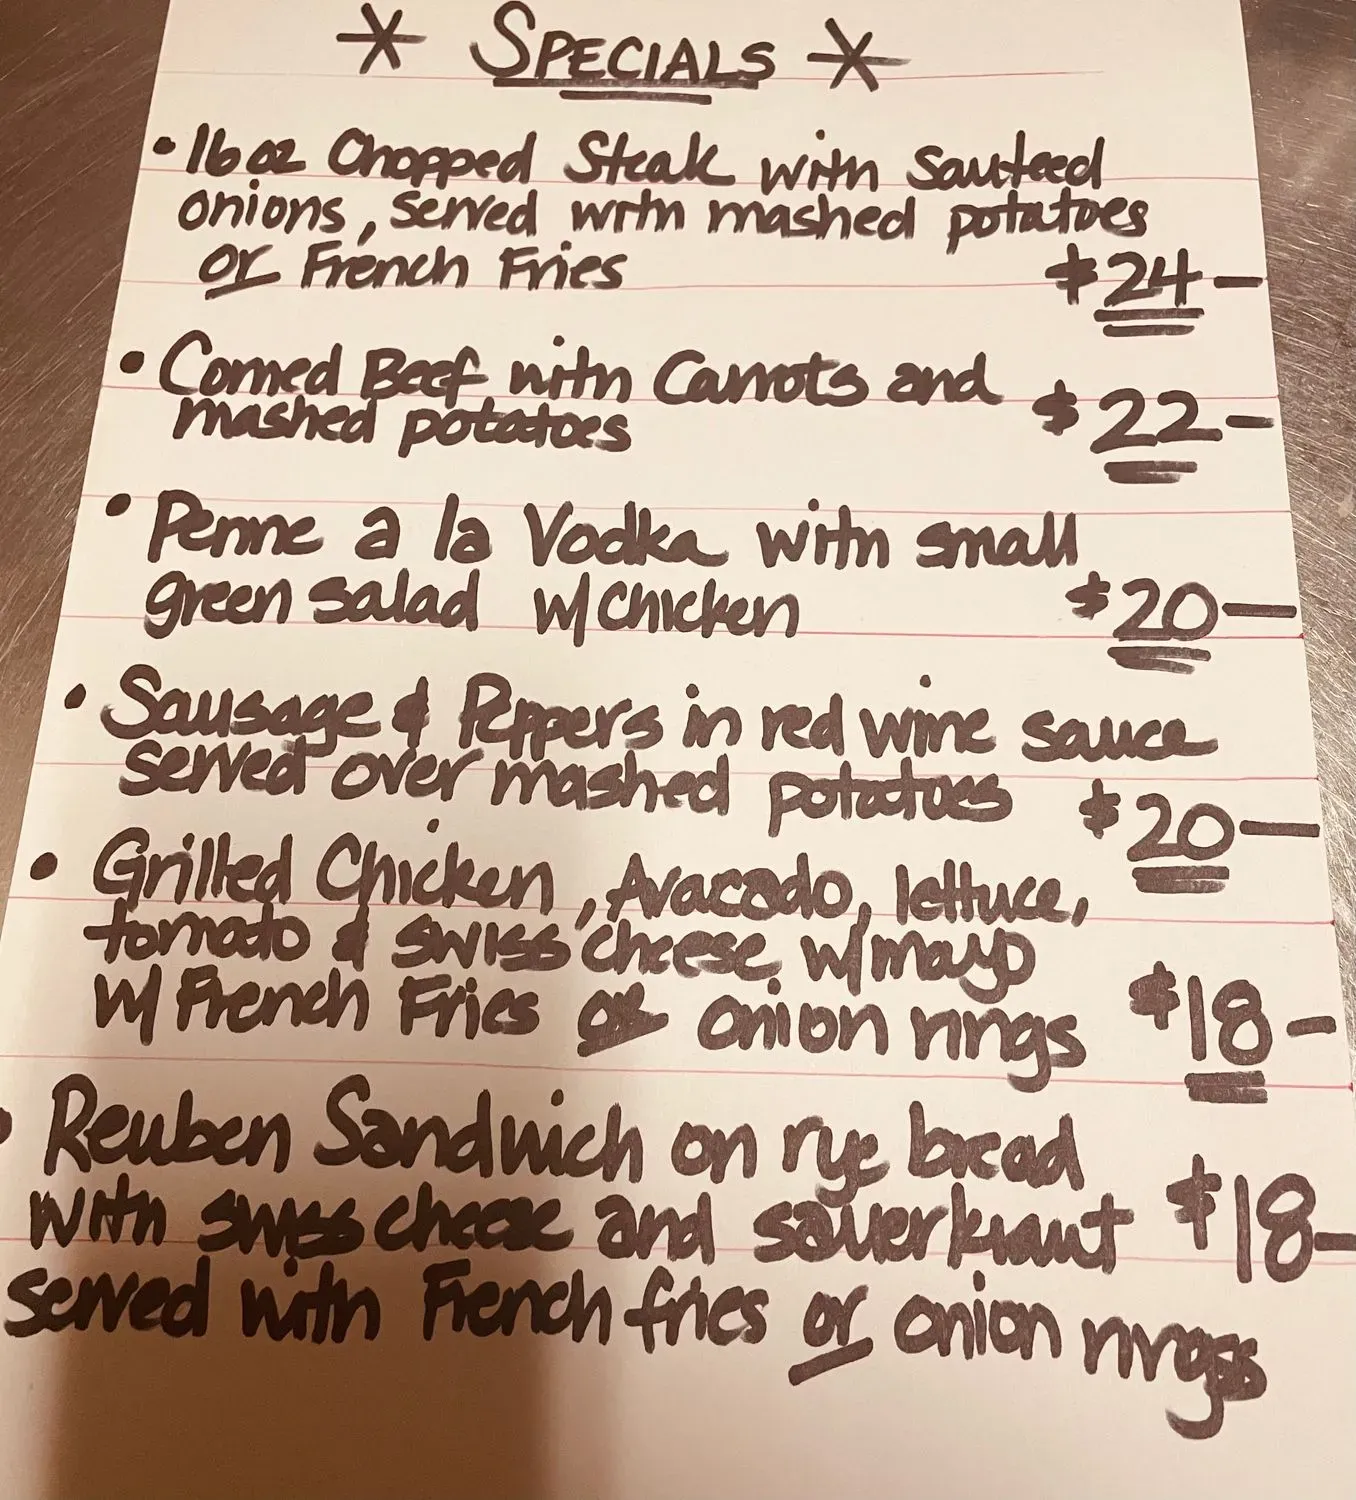 * SPECIALS *
• 16 oz Chopped Steak with Sauteed
onions, served with mashed potatoes
or French Fries $24 —
• Corned Beef with Carrots and
mashed potatoes $22 —
• Penne a la Vodka with small
green salad w/chicken $20 —
• Sausage & Peppers in red wine sauce
served over mashed potatoes $20 —
• Grilled Chicken, Avacado, lettuce,
tomato & swiss cheese w/mayo
w/ French Fries or onion rings $18 —
• Reuben Sandwich on rye bread
with swiss cheese and sauerkraut $18 —
served with French fries or onion rings